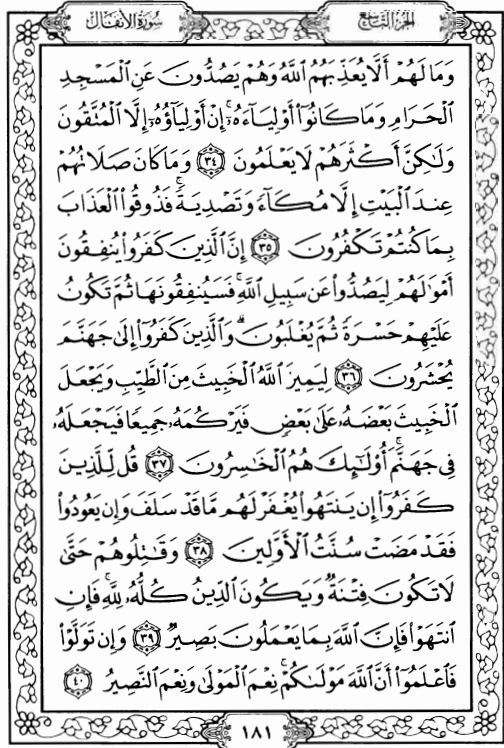 سورة الأنفال
الجزء التاسع
وَمَا لَهُمْ أَلَّا يُعَذِّبَهُمُ اللَّهُ وَهُمْ يَصُدُّونَ عَنِ الْمَسْجِدِ
الْحَرَامِ وَمَا كَانُوٓا۟ أَوْلِيَآءَهُۥٓ ۚ إِنْ أَوْلِيَآؤُهُۥٓ إِلَّا الْمُتَّقُونَ
وَلَٰكِنَّ أَكْثَرَهُمْ لَا يَعْلَمُونَ ٣٤ وَمَا كَانَ صَلَاتُهُمْ
عِندَ الْبَيْتِ إِلَّا مُكَآءً وَتَصْدِيَةً ۚ فَذُوقُوا۟ الْعَذَابَ
بِمَا كُنتُمْ تَكْفُرُونَ ٣٥ إِنَّ الَّذِينَ كَفَرُوا۟ يُنفِقُونَ
أَمْوَٰلَهُمْ لِيَصُدُّوا۟ عَن سَبِيلِ اللَّهِ ۚ فَسَيُنفِقُونَهَا ثُمَّ تَكُونُ
عَلَيْهِمْ حَسْرَةً ثُمَّ يُغْلَبُونَ ۗ وَالَّذِينَ كَفَرُوٓا۟ إِلَىٰ جَهَنَّمَ
يُحْشَرُونَ ٣٦ لِيَمِيزَ اللَّهُ الْخَبِيثَ مِنَ الطَّيِّبِ وَيَجْعَلَ
الْخَبِيثَ بَعْضَهُۥ عَلَىٰ بَعْضٍ فَيَرْكُمَهُۥ جَمِيعًا فَيَجْعَلَهُۥ
فِى جَهَنَّمَ ۚ أُو۟لَٰٓئِكَ هُمُ الْخَٰسِرُونَ ٣٧ قُل لِّلَّذِينَ
كَفَرُوٓا۟ إِن يَنتَهُوا۟ يُغْفَرْ لَهُم مَّا قَدْ سَلَفَ وَإِن يَعُودُوا۟
فَقَدْ مَضَتْ سُنَّتُ الْأَوَّلِينَ ٣٨ وَقَٰتِلُوهُمْ حَتَّىٰ
لَا تَكُونَ فِتْنَةٌ وَيَكُونَ الدِّينُ كُلُّهُۥ لِلَّهِ ۚ فَإِنِ
انتَهَوْا۟ فَإِنَّ اللَّهَ بِمَا يَعْمَلُونَ بَصِيرٌ ٣٩ وَإِن تَوَلَّوْا۟
فَاعْلَمُوٓا۟ أَنَّ اللَّهَ مَوْلَىٰكُمْ ۚ نِعْمَ الْمَوْلَىٰ وَنِعْمَ النَّصِيرُ ٤٠
١٨١